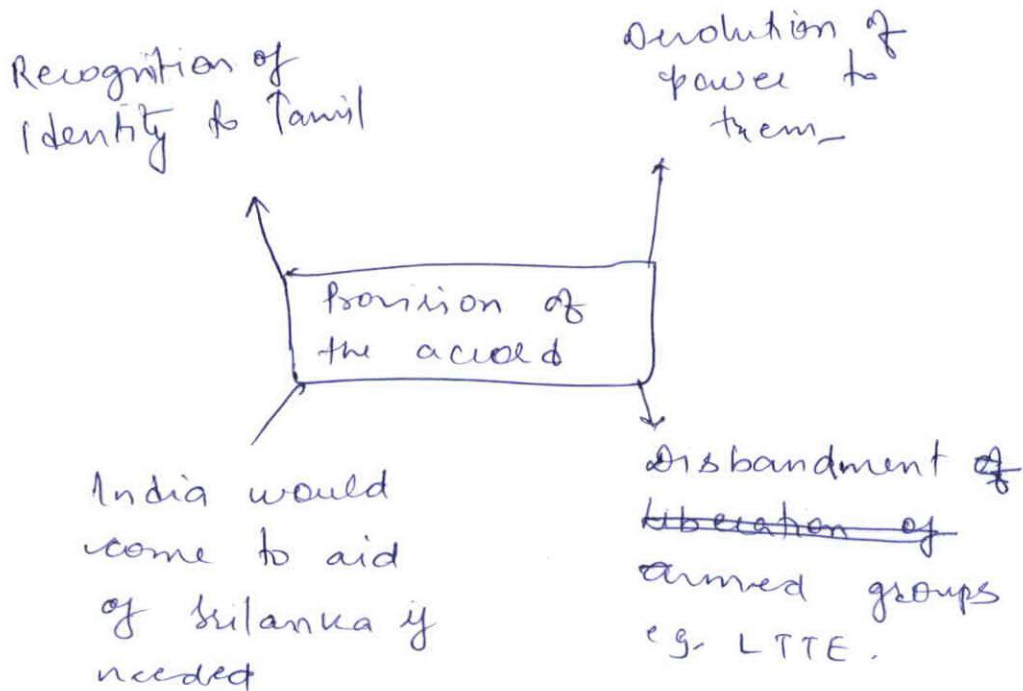 Recognition of
Identity to Tamil
Devolution of
power to
them
Provision of
the accord
India would
come to aid
of Srilanka if
needed
Disbandment of
Liberation of
armed groups
eg. LTTE.